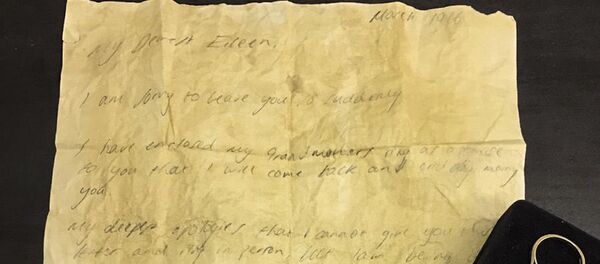 March 1916
My Dearest Eileen,
I am sorry to leave you so suddenly
I have enclosed my Grandmothers ring as a promise
to you that I will come back and one day marry
you.
My deepest apologies that I cannot give you this
letter and not in person, but I am being